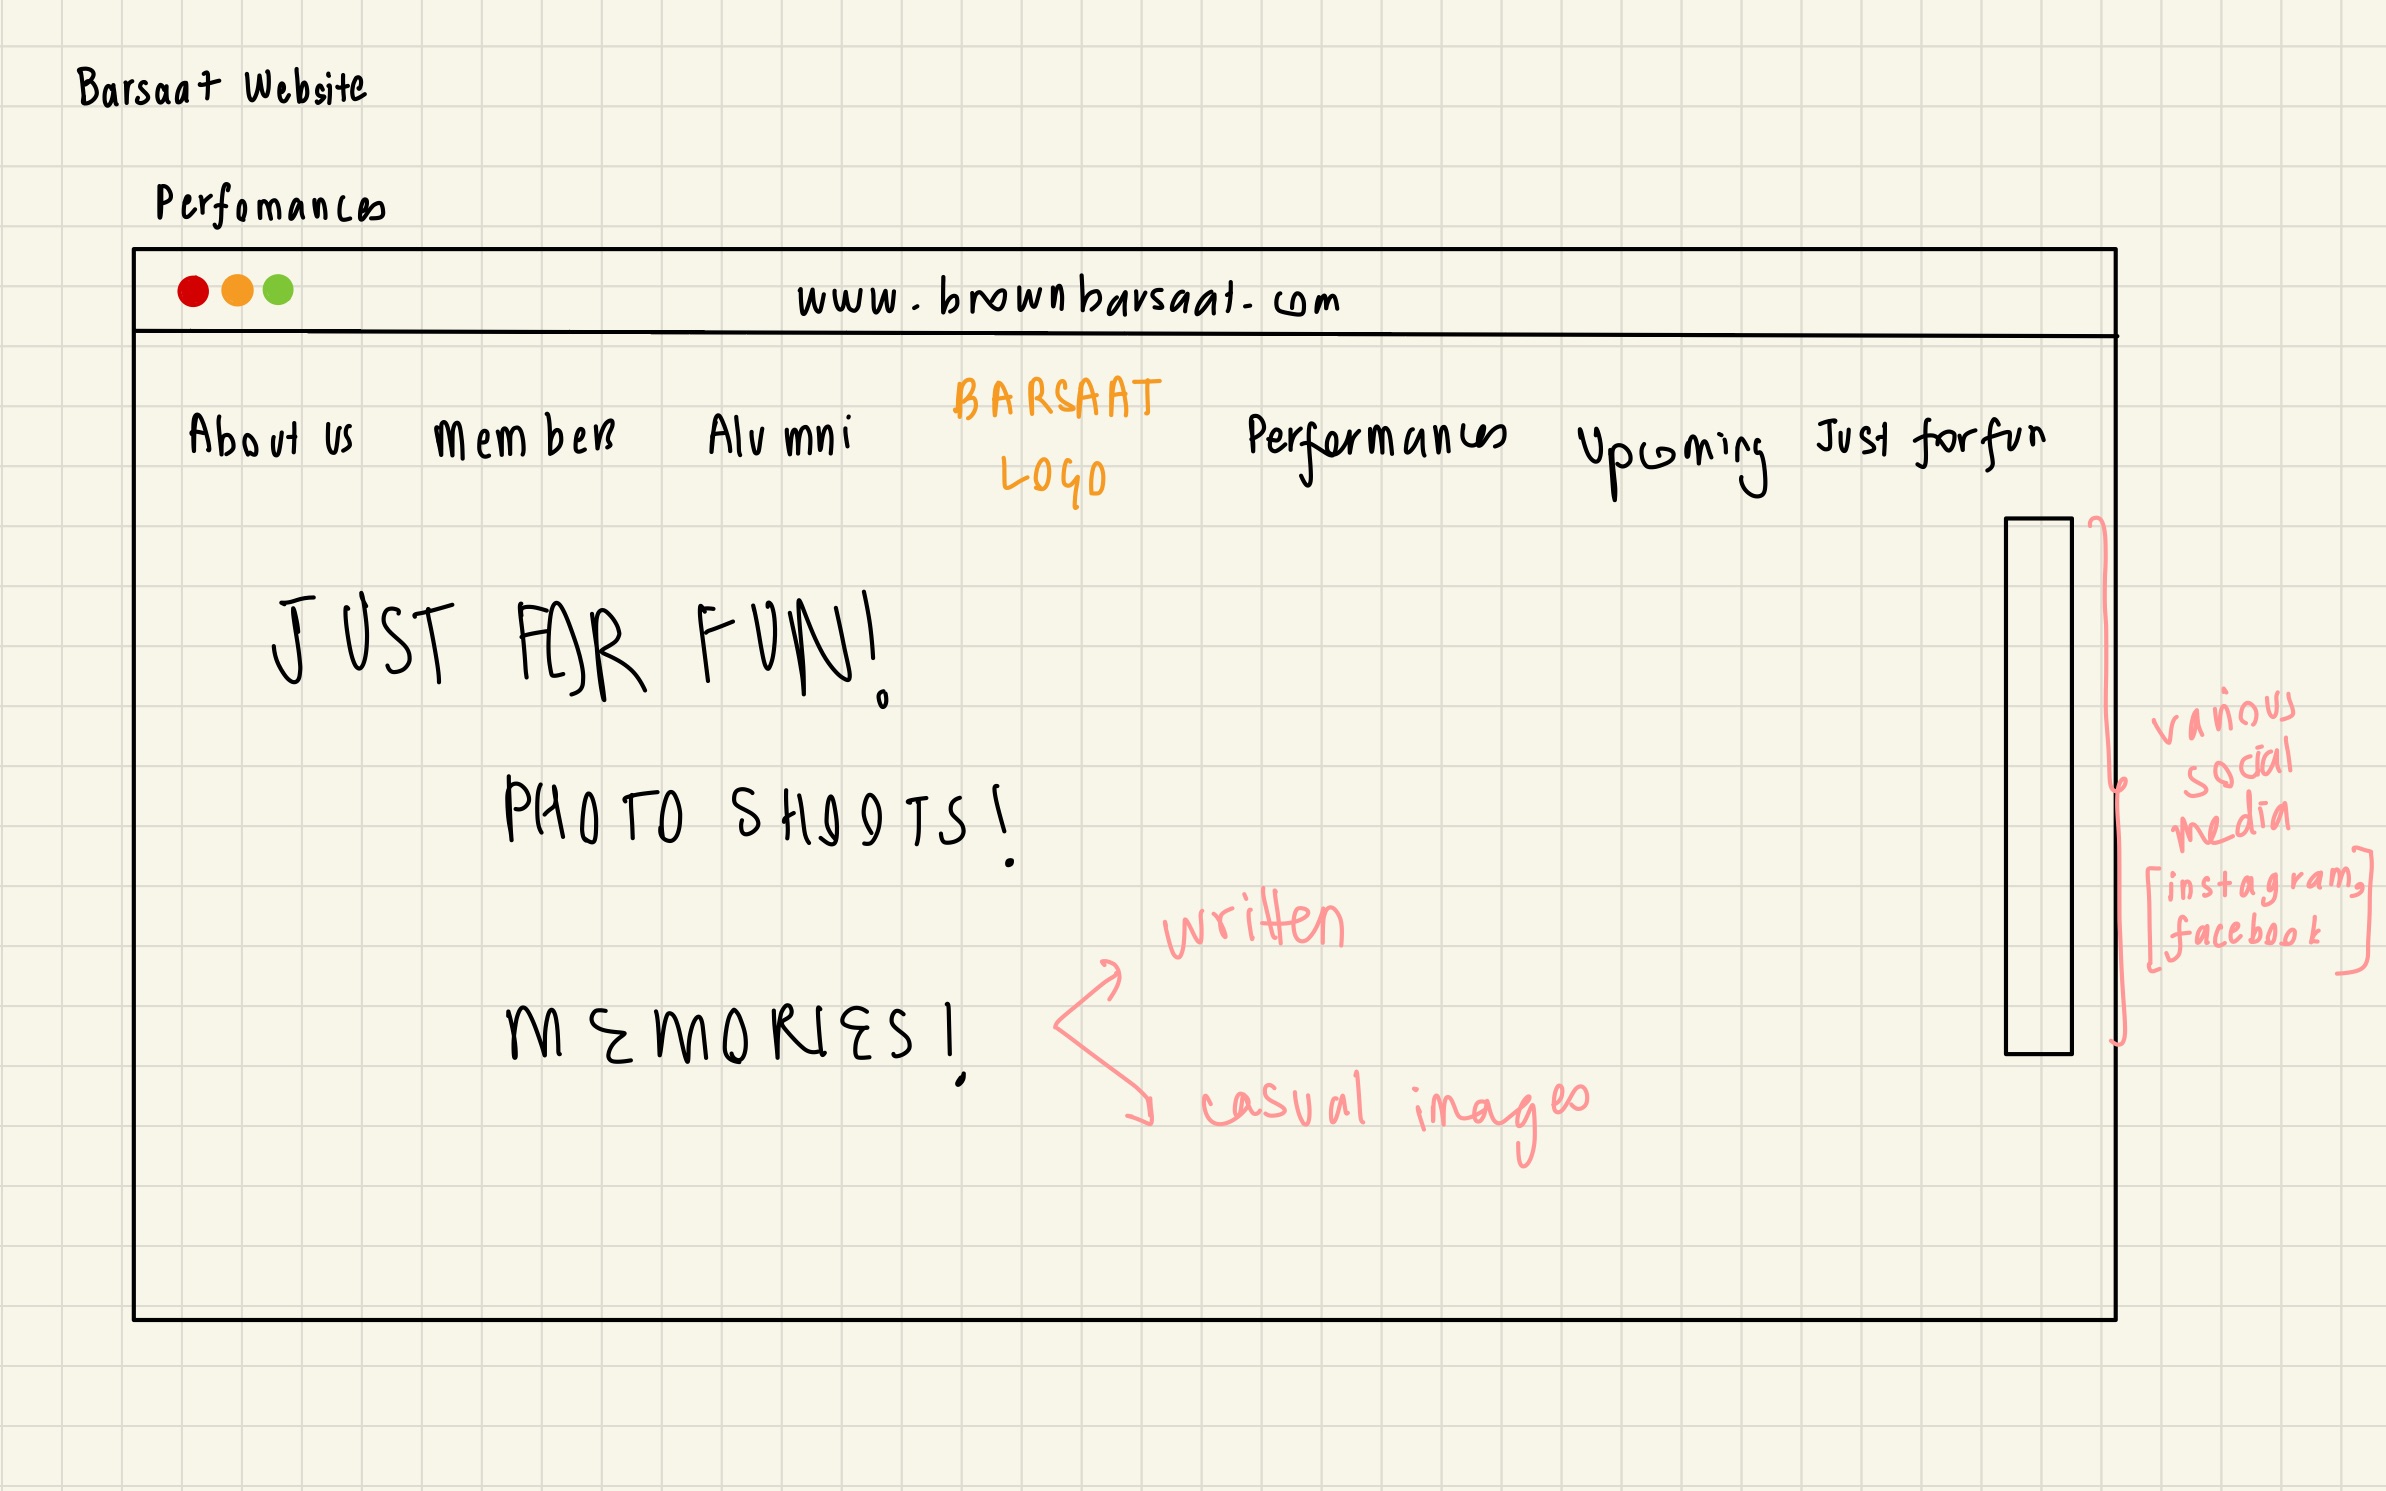 Barsaat Website
Perfomances
www.brownbarsaat.com
About us Members Alumni BARSAAT LOGO Performances Upcoming Just for fun
JUST FOR FUN!
PHOTO SHOOTS!
MEMORIES!
written
casual images
various
social
media
[instagram,
facebook]